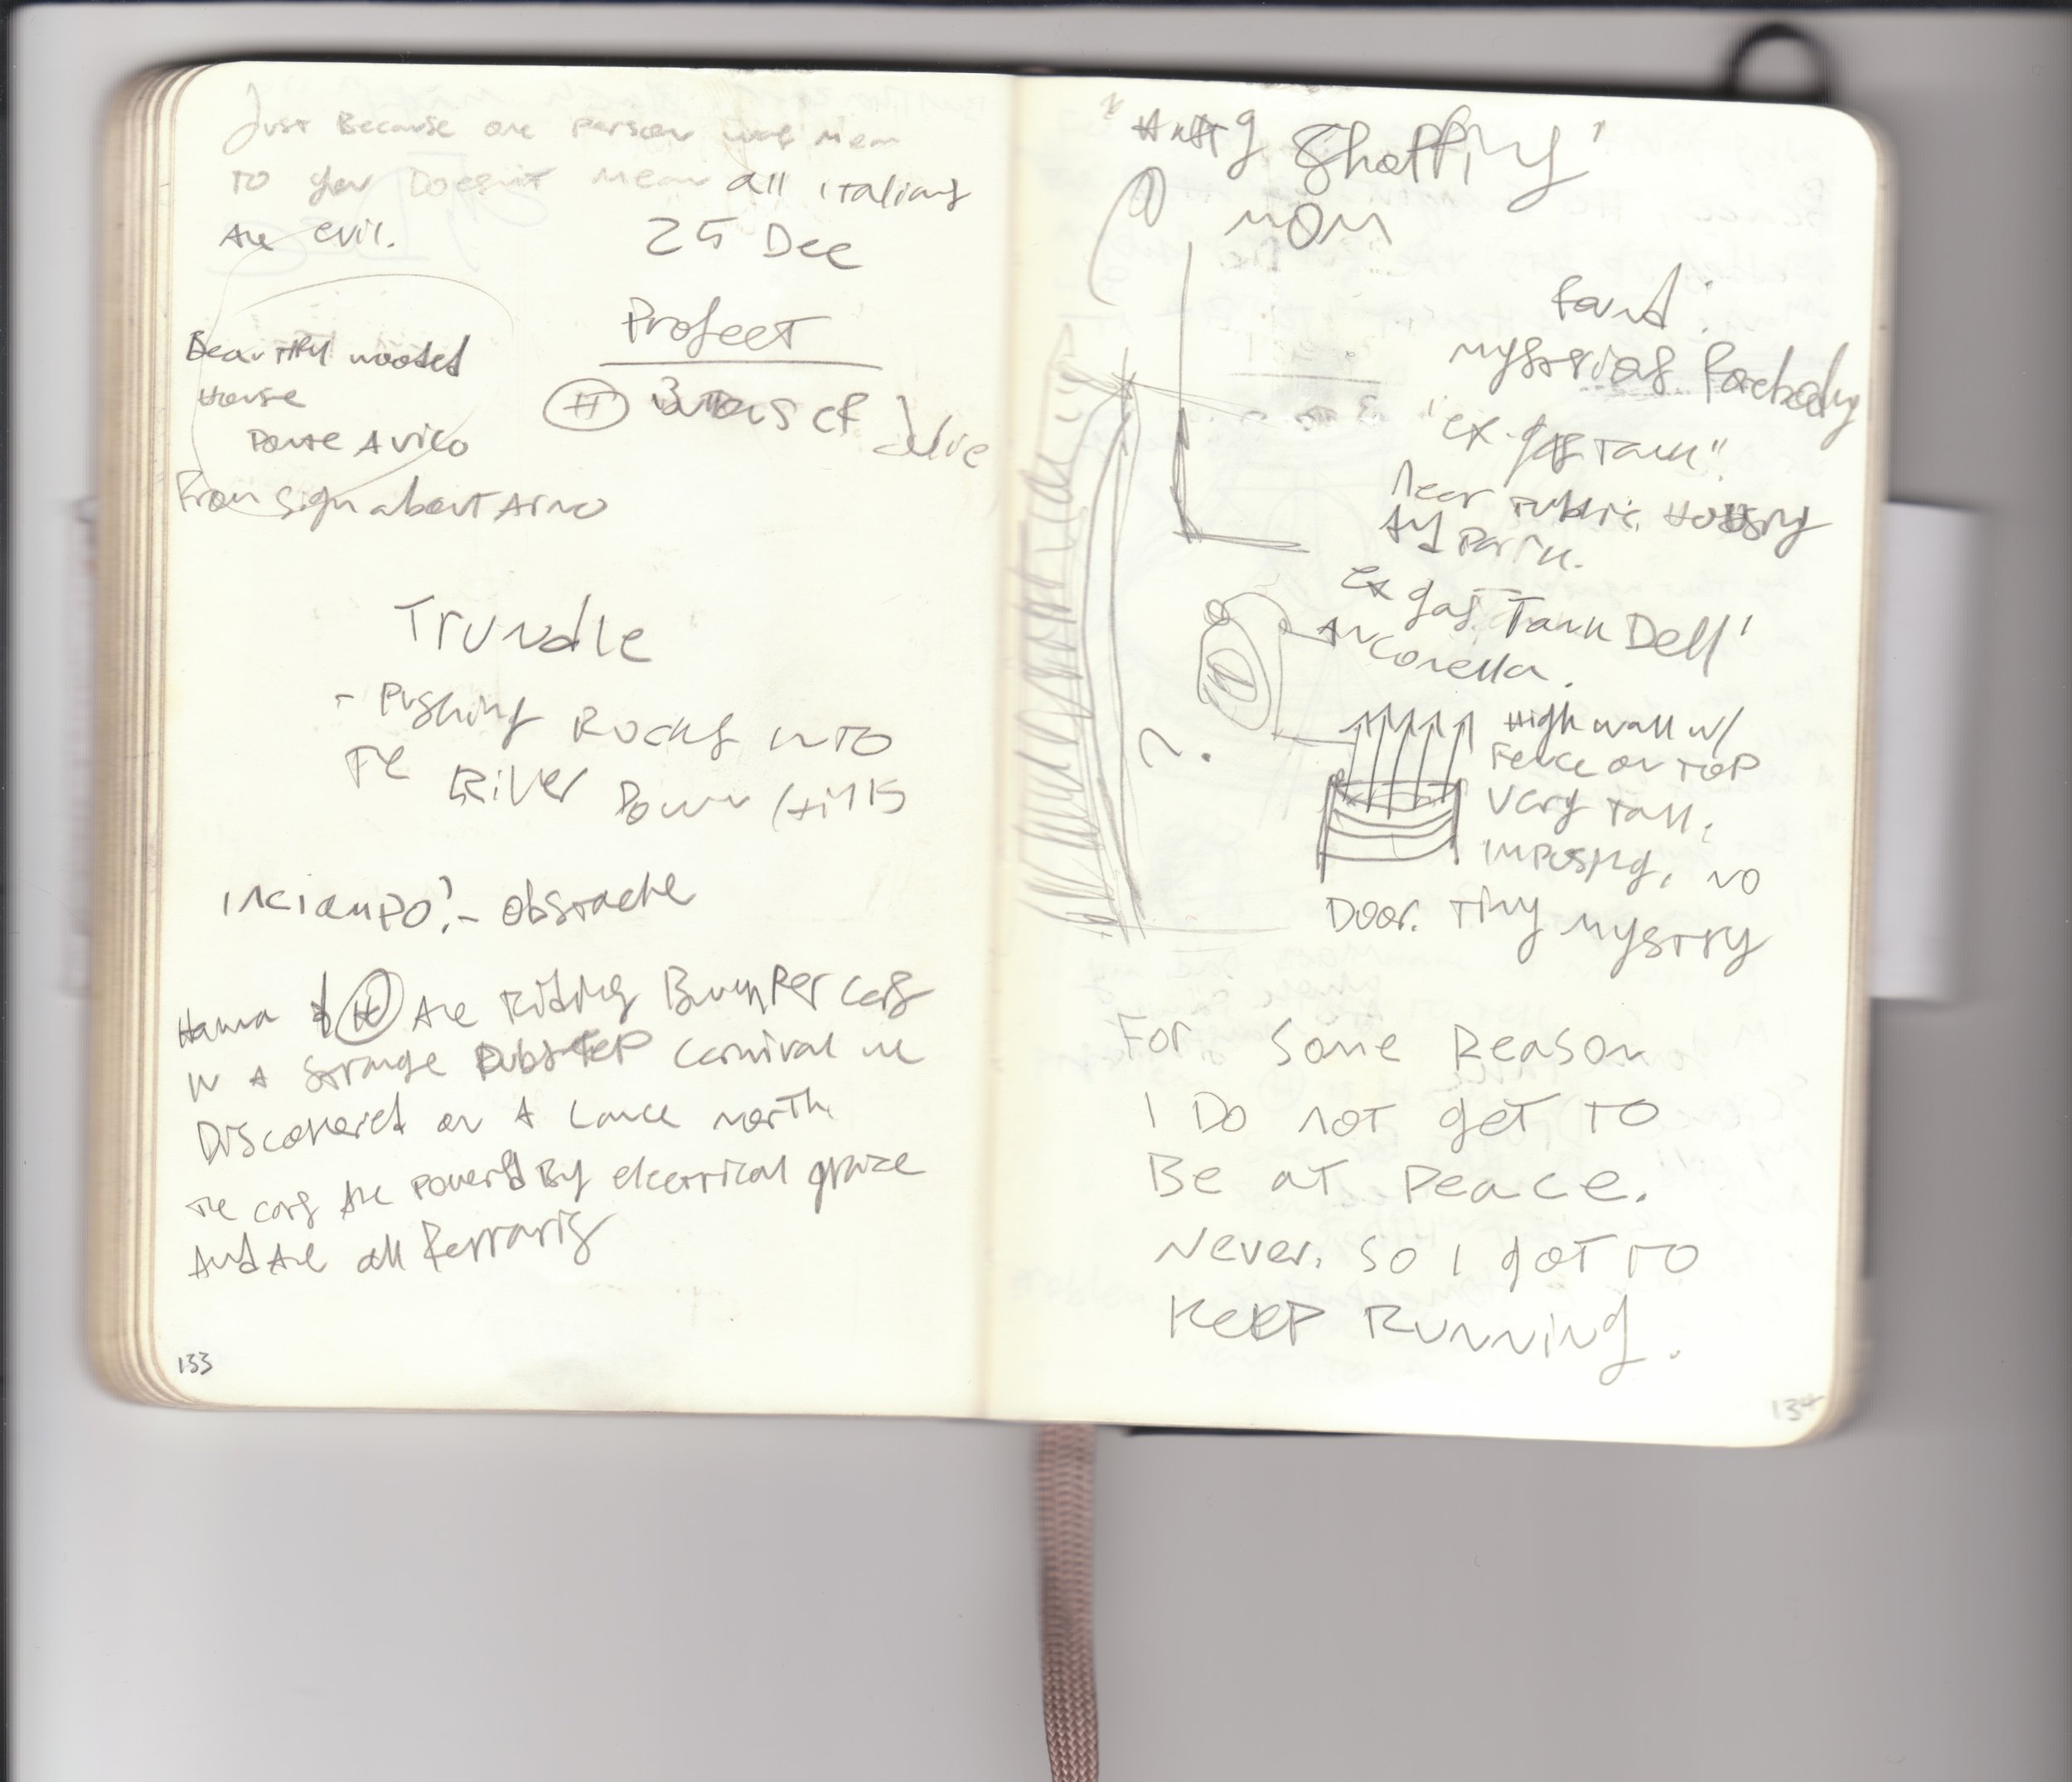 Just Because one person was mean
to you Doesn't mean all italians
Are evil.
25 Dec
Project
H
Beautiful wooded
House
Ponte A vico
From sign about Arno
Trundle
- Pushing Rocks into
The River Down Hills
inciampo? - obstacle
Hama & H Are Riding Bumper cars
in a strange Dubstep Carnival we
Discovered on a Lance north
The cars Are powered By electrical graze
And Are all Ferraris
133
Shopping"
mom
found:
mysterious
"ex-gas tank"
near Public Housing
And Park.
ex gas Tank Dell'
Anconella.
?
High wall w/
Fence on Top
Very Tall,
imposing, no
Door. Tiny mystry
For some Reason
I Do not get to
Be at Peace.
Never. So I got to
Keep Running.
134